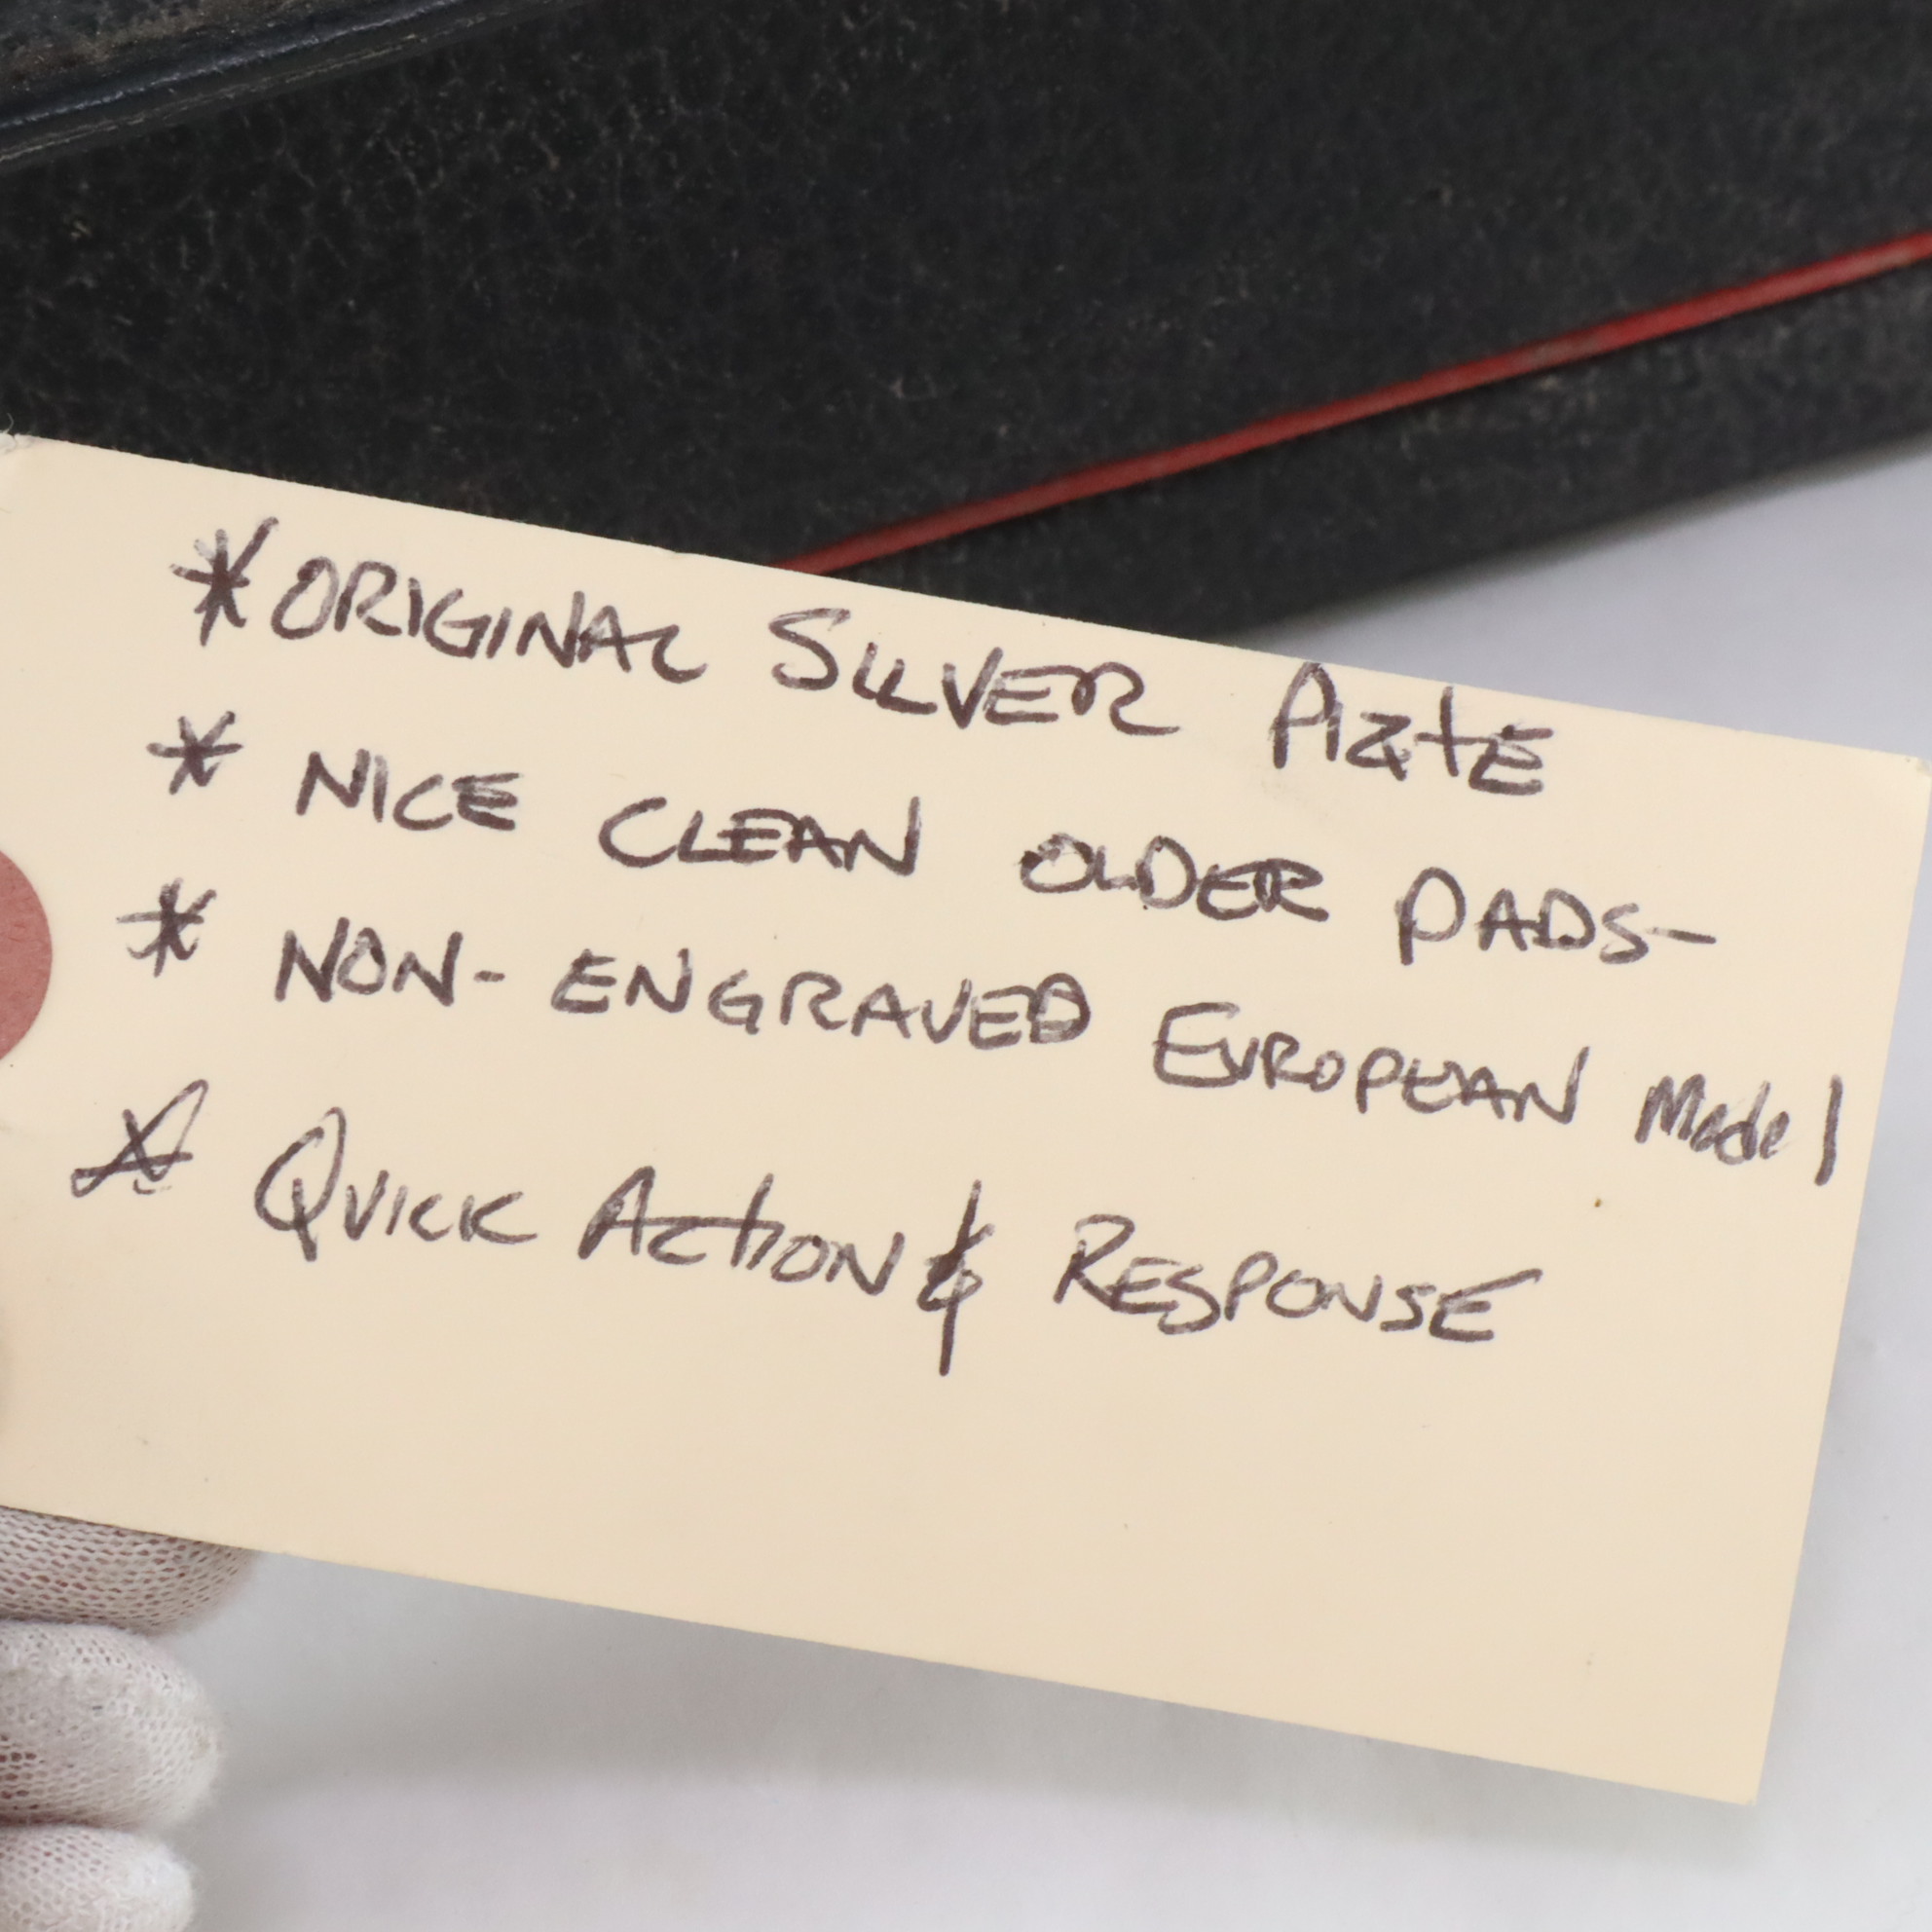 * ORIGINAL SILVER PlatE
* NICE CLEAN OLDER PADS-
* NON-ENGRAVED EUROPEAN Model
* QUICK ACtION & RESPONSE